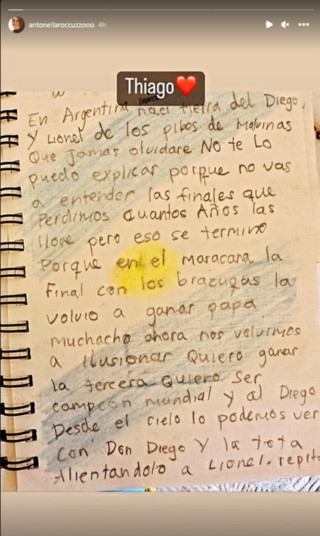 antonellaroccuzzooo 4h
Thiago
En Argentina naci tierra del Diego,
Y Lionel de los pibes de Malvinas
Que Jamas olvidare NO te Lo
puedo explicar porque no vas
a entender las finales que
Perdimos cuantos Años las
llore pero eso se termino
Porque en el maracana la
final con los brazugas la
volvio a ganar papa
muchacho ahora nos volvimos
a ilusionar Quiero ganar
la tercera Quiero Ser
campeon mundial y al Diego
Desde el cielo lo podemos ver
con Don Diego Y la tota
Alientandolo a Lionel. repito